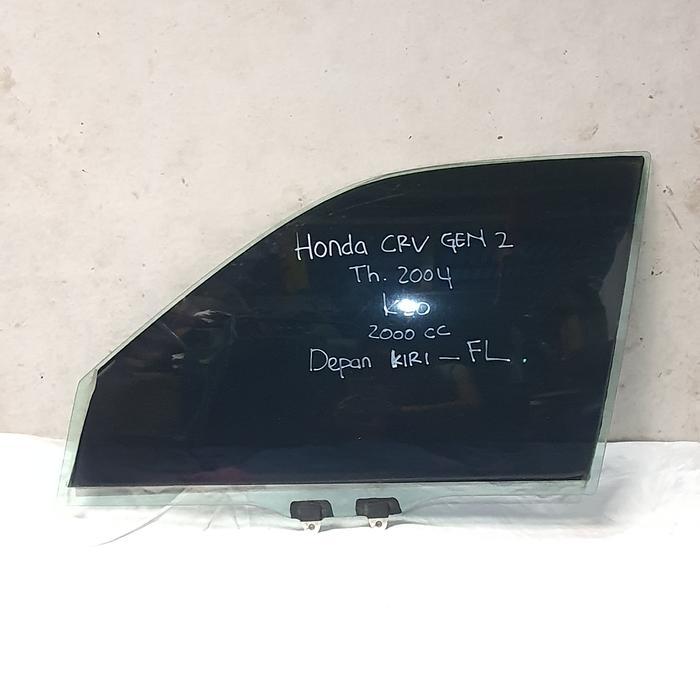 Honda CRV GEN 2
Th. 2004
K20
2000 CC
Depan KIRI - FL.